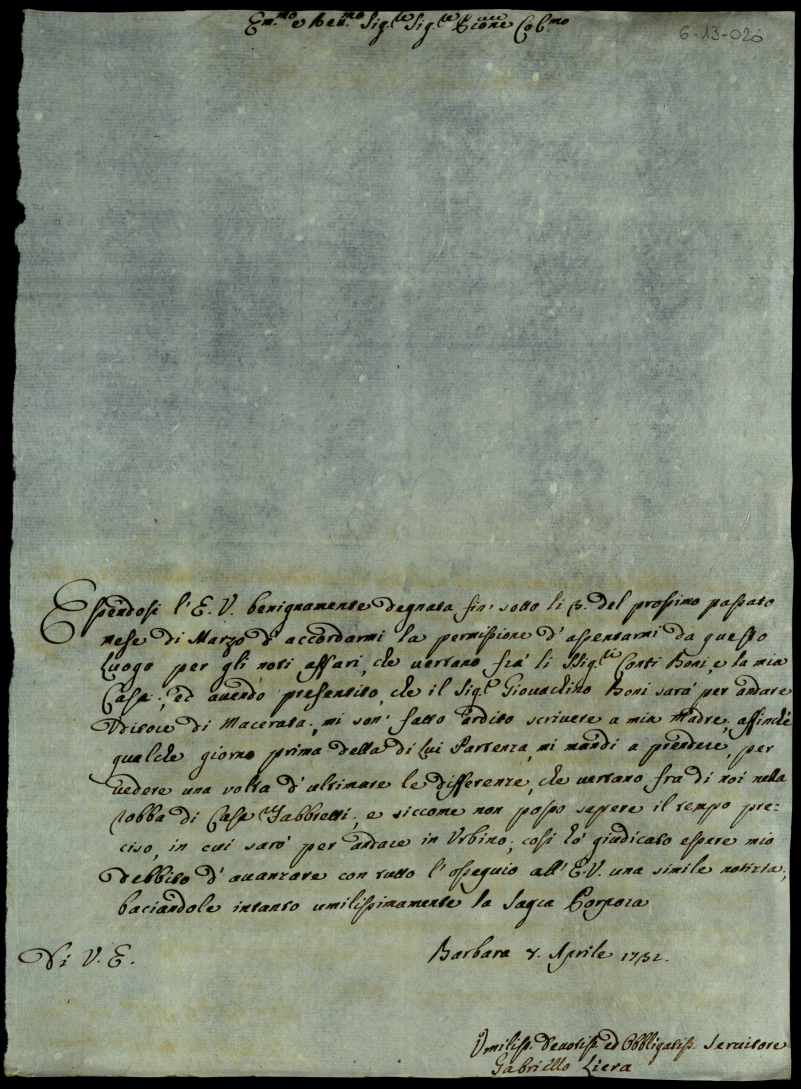 Em.mo e Rev.mo Sig.re Sig.re P.rone Col.mo
6-13-026
Essendosi l'E. V. benignamente degnata fin' sotto li 3. del prossimo passato
mese di Marzo d'accordarmi la permissione d'assentarmi da questo
Luogo per gli noti affari, che vertano frà li SSig.ri Conti Boni, e la mia
Casa; ed avendo presentito, che il Sig.r Giovachino Boni sarà per andare
Uditore di Macerata, mi son' fatto ardito scrivere a mia Madre, affinchè
qualche giorno prima della di Lui Partenza, mi mandi a prendere, per
vedere una volta d'ultimare le differenze, che vertano fra di noi nella
robba di Casa Fabbretti, e siccome non posso sapere il tempo pre=
ciso, in cui sarò per andare in Urbino, così hò giudicato essere mio
debbito d'avanzare con tutto l'ossequio all'E. V. una simile notizia,
baciandole intanto umilissimamente la Sagra Porpora
Di V. E.
Barbara Aprile
Umiliss. Devotiss. ed Obbligatiss. Servitore
Gabriello Liera